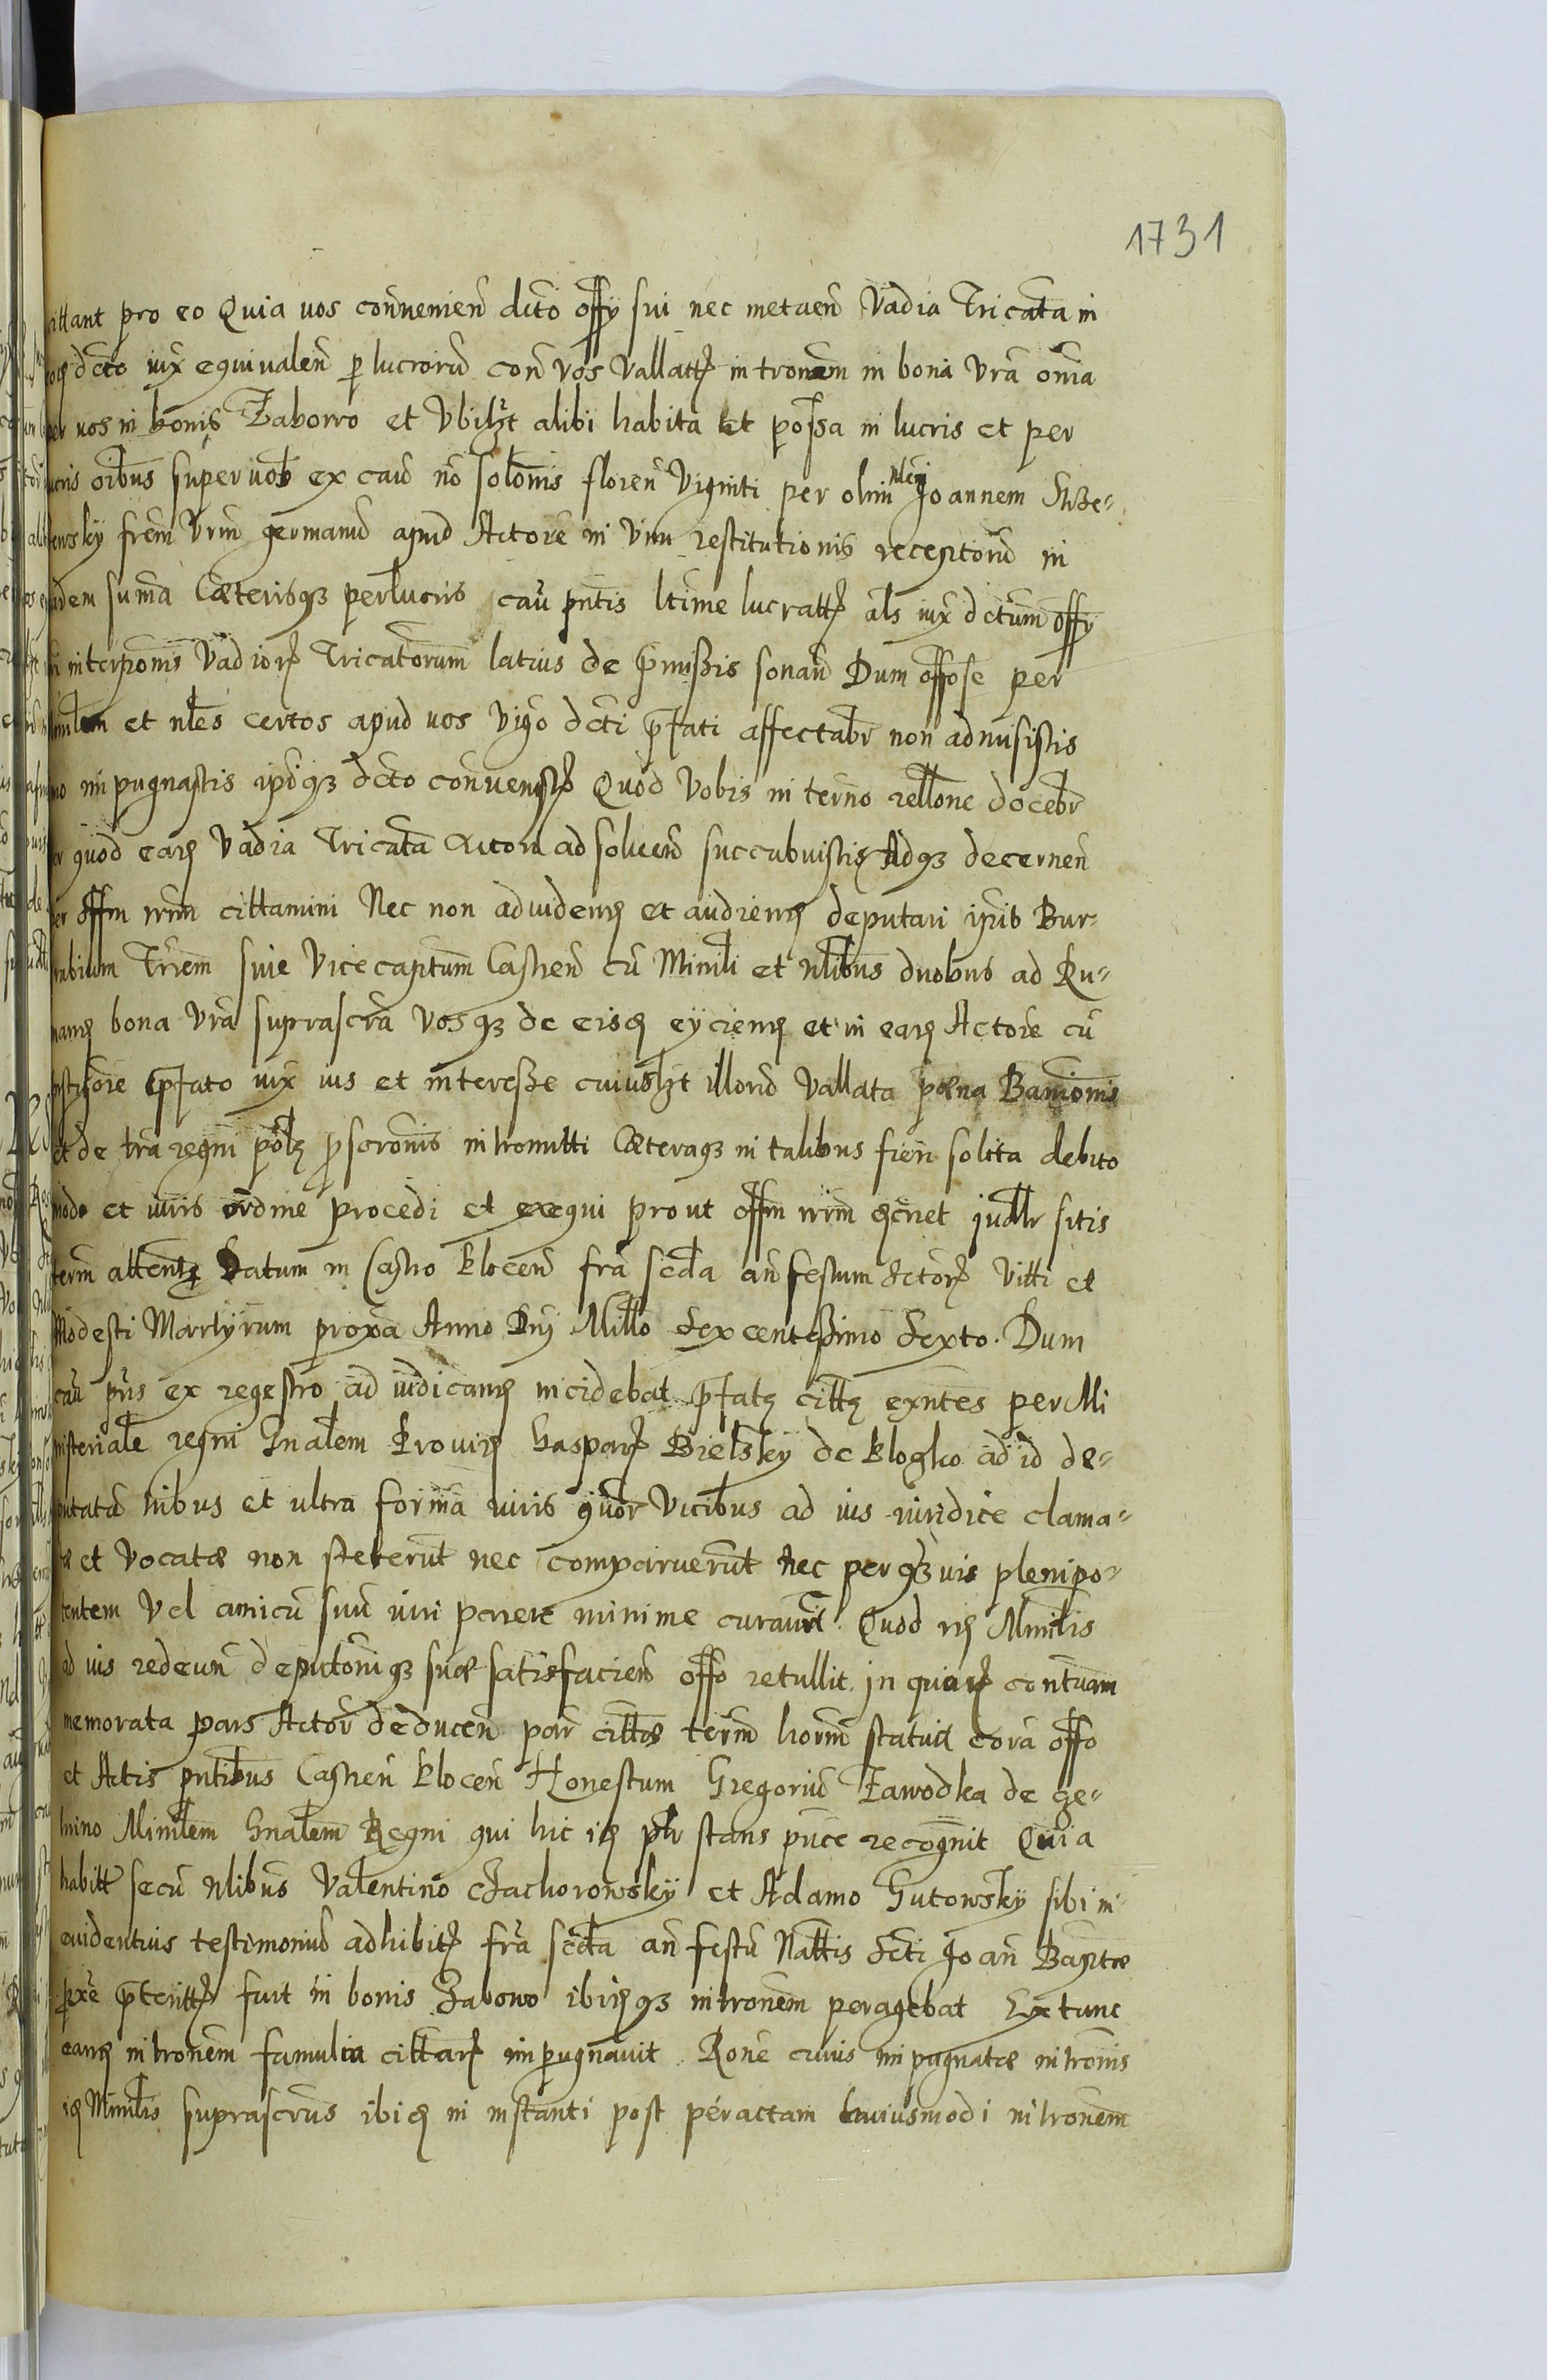 1731
cittant pro eo Quia vos convenien dcto offy sui nec metuen Vadia Tricata in
dcto iux equivalen p lucrorū con vos Vallatt intronem in bona Vra onia
per vos in bonis Zaborro et Vbilzt alibi habita et poſsa in lucris et per
lucris oibus super vob ex cau no solonis floren Viginti per olim Nlem Joannem
frem Vrm germanū apud Actore in Vim restitutionis receptorū in
eadem suma Cæterisq3 perlucris cau pntis ltime lucratt als iux dctum offy
sui interponis Vadior Tricatorum latius de pmiſsis sonan Dum offose per
minilem et nles certos apud vos Vigo dcti pfati affectabr non admisistis
imo impugnastis ipoq3 dcto convenistr Quod Vobis in terno rellone docebr
per quod eaꝫ Vadia Tricata Actori ad solven succubuistis Adq3 decernen
per offm nrm cittamini Nec non ad videnꝫ et audienꝫ deputari ipis Bur-
rabium Trem sive Vicecaptum Castren cū Minili et Nlibus duobus ad Ru-
manꝫ bona Vra suprascra Vosq3 de eisꝫ eycienꝫ et in eaꝫ Actore cū
pfato iux ius et intereſse cuiuslzt illorū Vallata pœna Banionis
et de tra regni polꝫ pscronis intromitti Cæteraq3 in talibus fieri solita debito
modo et iuris ordine procedi et exequi prout offm nrm dcnet judlr sitis
term attentꝫ Datum in Castro Plocen fra scda an festum sctorꝫ Vitti et
Modesti Martyrum proxa Anno Dnj Millo Sexcenteſsimo Sexto. Dum
cau pns ex regestro ad iudicanꝫ incidebat pfatꝫ cittꝫ exntes per Mi
nisteriale regni Gnalem Provinꝫ Gasparꝫ Bielsky de Plocko ad id de-
putatū tribus et ultra forma iuris quor Vicibus ad ius iuridice clama-
tæ et Vocatæ non steterūt nec comparuerūt nec per q3vis plenipo-
tentem Vel amicū suū iuri parere minime curavit. Quod iꝫ Minilis
ad ius redeun deputoniq3 suæ satisfacien offo retullit. In quarꝫ contuam
memorata pars Actor deducen par cittæ term horm statuit cora offo
et Actis pntibus Castren Plocen Honestum Gregoriū Zawodka de Ge-
lnino Minilem Gnalem Regni qui hic iꝫ plr stans pnce recognit Quia
habitt secū Nlibus Valentino Zachorowsky et Adamo Gutowsky sibi in
evidentius testimoniū adhibitꝫ fra scda an festū Nattis Scti Joan Baptæ
pxe pteritt fuit in bonis Zabowo ibiꝫq3 intronem peragebat Extunc
eanꝫ intronem famulia cittarꝫ impugnavit. Rone cuius impugnatæ intronis
iꝫ Minilis suprascrus ibiꝫ in instanti post peractam huiusmodi intronem